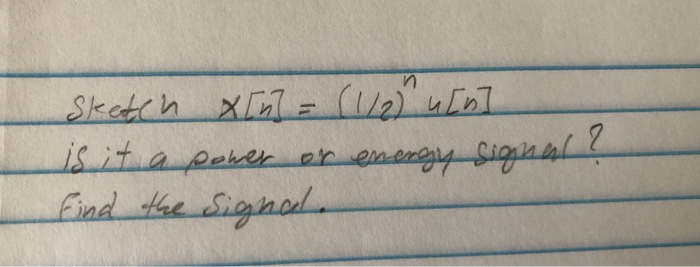 Sketch x[n] = (1/2)^n u[n]
is it a power or energy signal?
Find the signal.